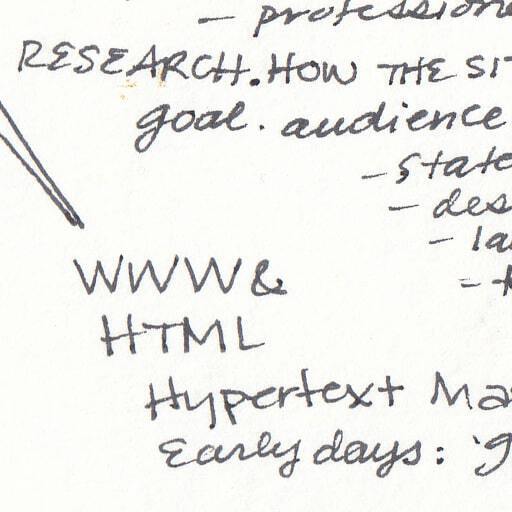 — professiona
RESEARCH. HOW THE SIT
goal. audience
— state
— des
— la
WWW &
HTML
Hypertext Ma
Early days: 'g